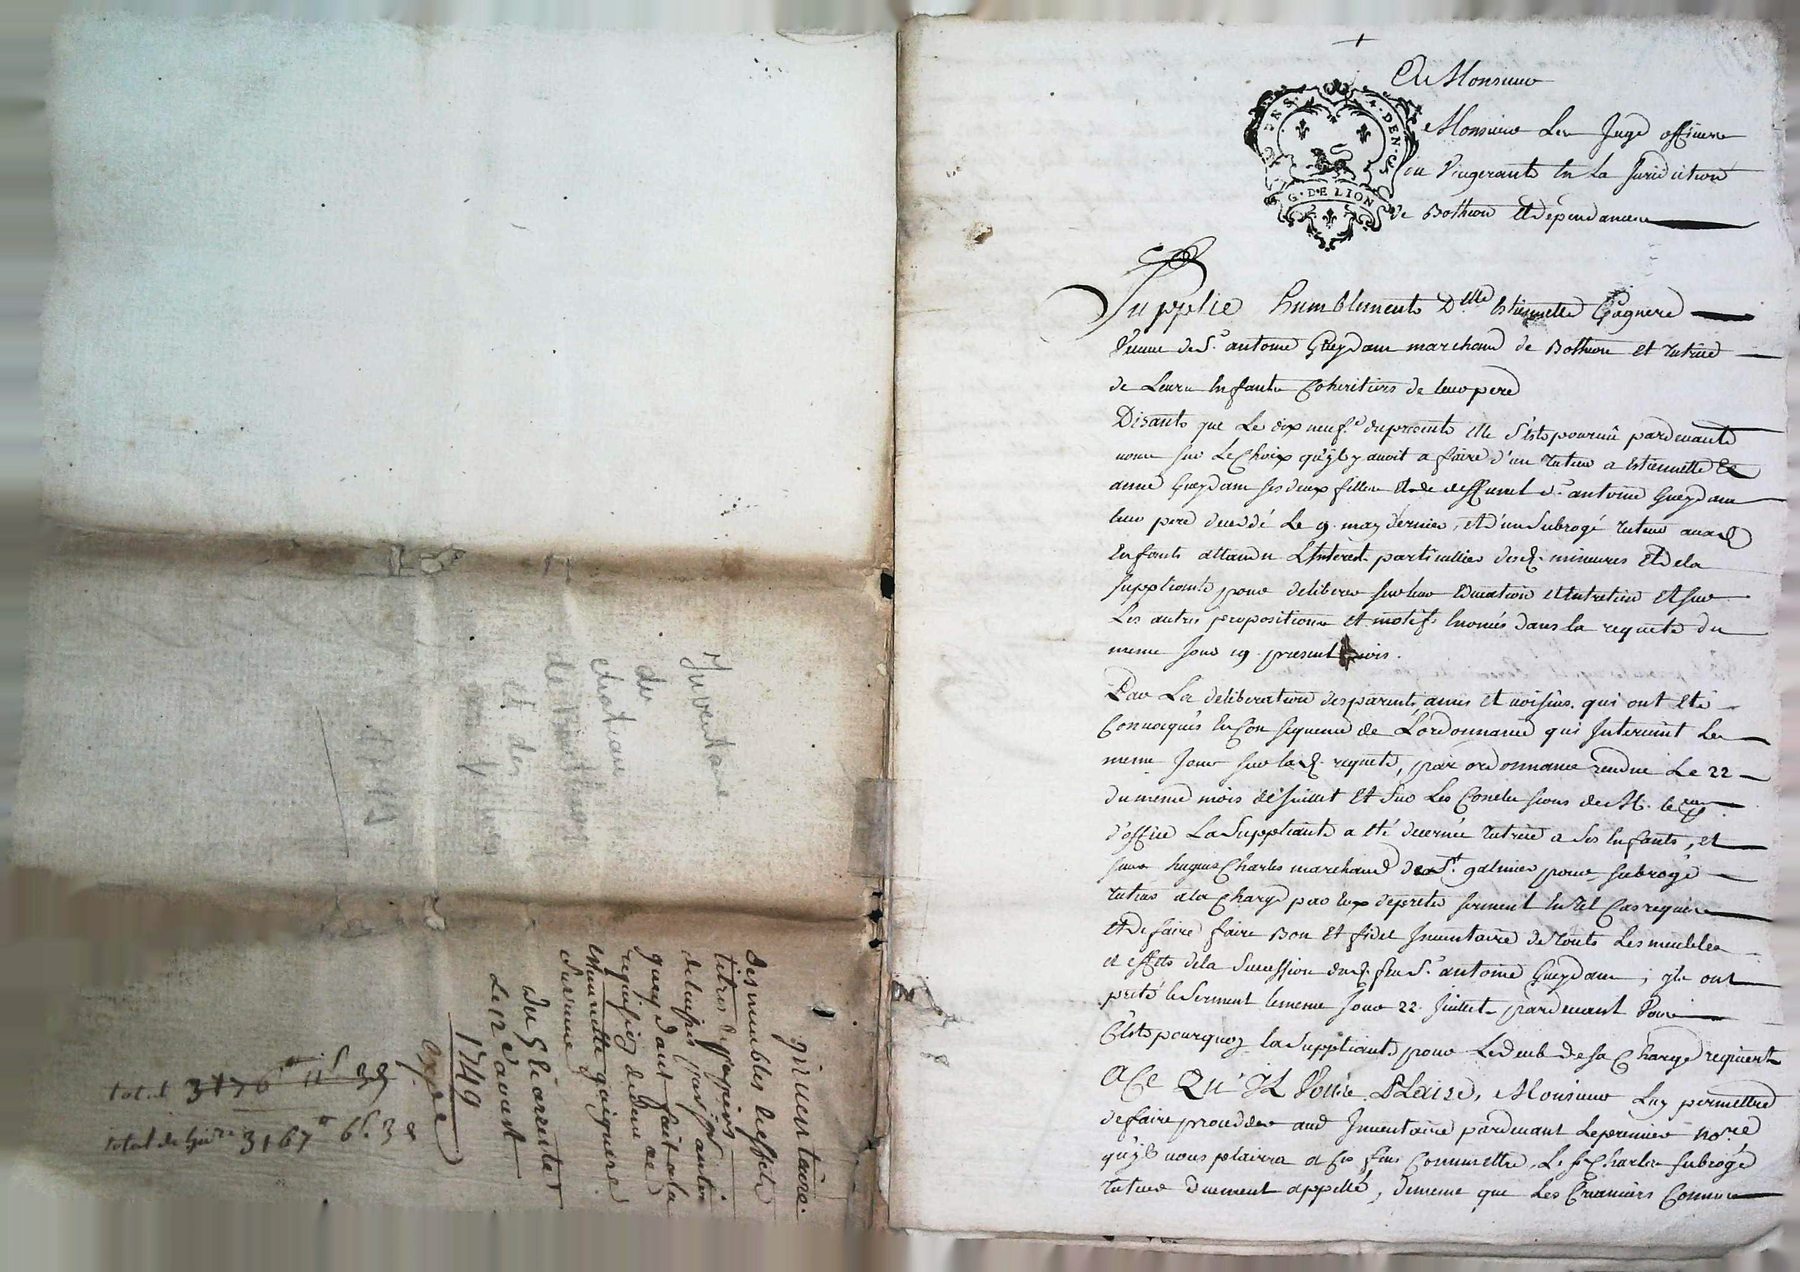 A Monsieur
Monsieur Les Juge officiers
ou Viugerants En La Juridiction
de Botheon et dependances
G. DE LION
Supplie humblement D.lle Estiennette Gagnere
Veuve de S.r antoine Gueydan marchand de Botheon et tutrice
de Leurs Enfants Coheritiers de leur pere
Disants que Le dix neuf.e du present elle s'est pourvue pardevant
vous sur Le Choix qu'il y avoit a faire d'un tuteur a Estiennette Et
anne Gueydan ses deux filles Et de deffunct S.r antoine Gueydan
leur pere decedé Le 9. may dernier, et d'un Subrogé tuteur
Enfants attandu L'Interest particullier des mineures et de la
suppliante pour deliberer sur leur Education et Entretien et sur
Les autres propositions et motifs Enoncés dans la requete du
meme Jour 19. present mois.
Par La deliberation des parents amis et voisins qui ont eté
Convoqués En Consequence de L'ordonnance qui Intervint Le
meme Jour sur lad. requete, par ordonnance rendue Le 22
du meme mois de Juillet et sur Les Conclusions de M. le
d'office La Suppliante a eté decernée tutrice a ses Enfants, et
sieur hugues Charles marchand de S.t galmier pour subrogé
tuteur a la Charge par Eux de preter serment En tel Cas requis
et de faire faire Bon et fidel Inventaire de touts Les meubles
et effets de la Succession dud. feu S.r antoine Gueydan; Ils ont
preté le Serment le meme Jour 22 Juillet pardevant Vous
C'est pourquoy la Suppliante pour Le deub de sa Charge requiert
A Ce QU'IL Vous PLaise, Monsieur Luy permettre
de faire proceder aud Inventaire pardevant Le premier no.re
qu'il vous plaira a Ces fins Commettre, Le S.r Charles subrogé
tuteur duement appellé, de meme que Les Creanciers Connus
Inventaire
du
chateau
de Bouthéon
et des
1749
Inventaire.
des meubles & effets
titres & papiers
delaissés par s.r antoine
gueydant fait a la
requisition de dem.lle
etiennette gaignere
sa veuve
Du
Le 12 d'aoust
1749
Exp.ée
total 3176 11 s 3 d
total de 3167 6 s. 3 d